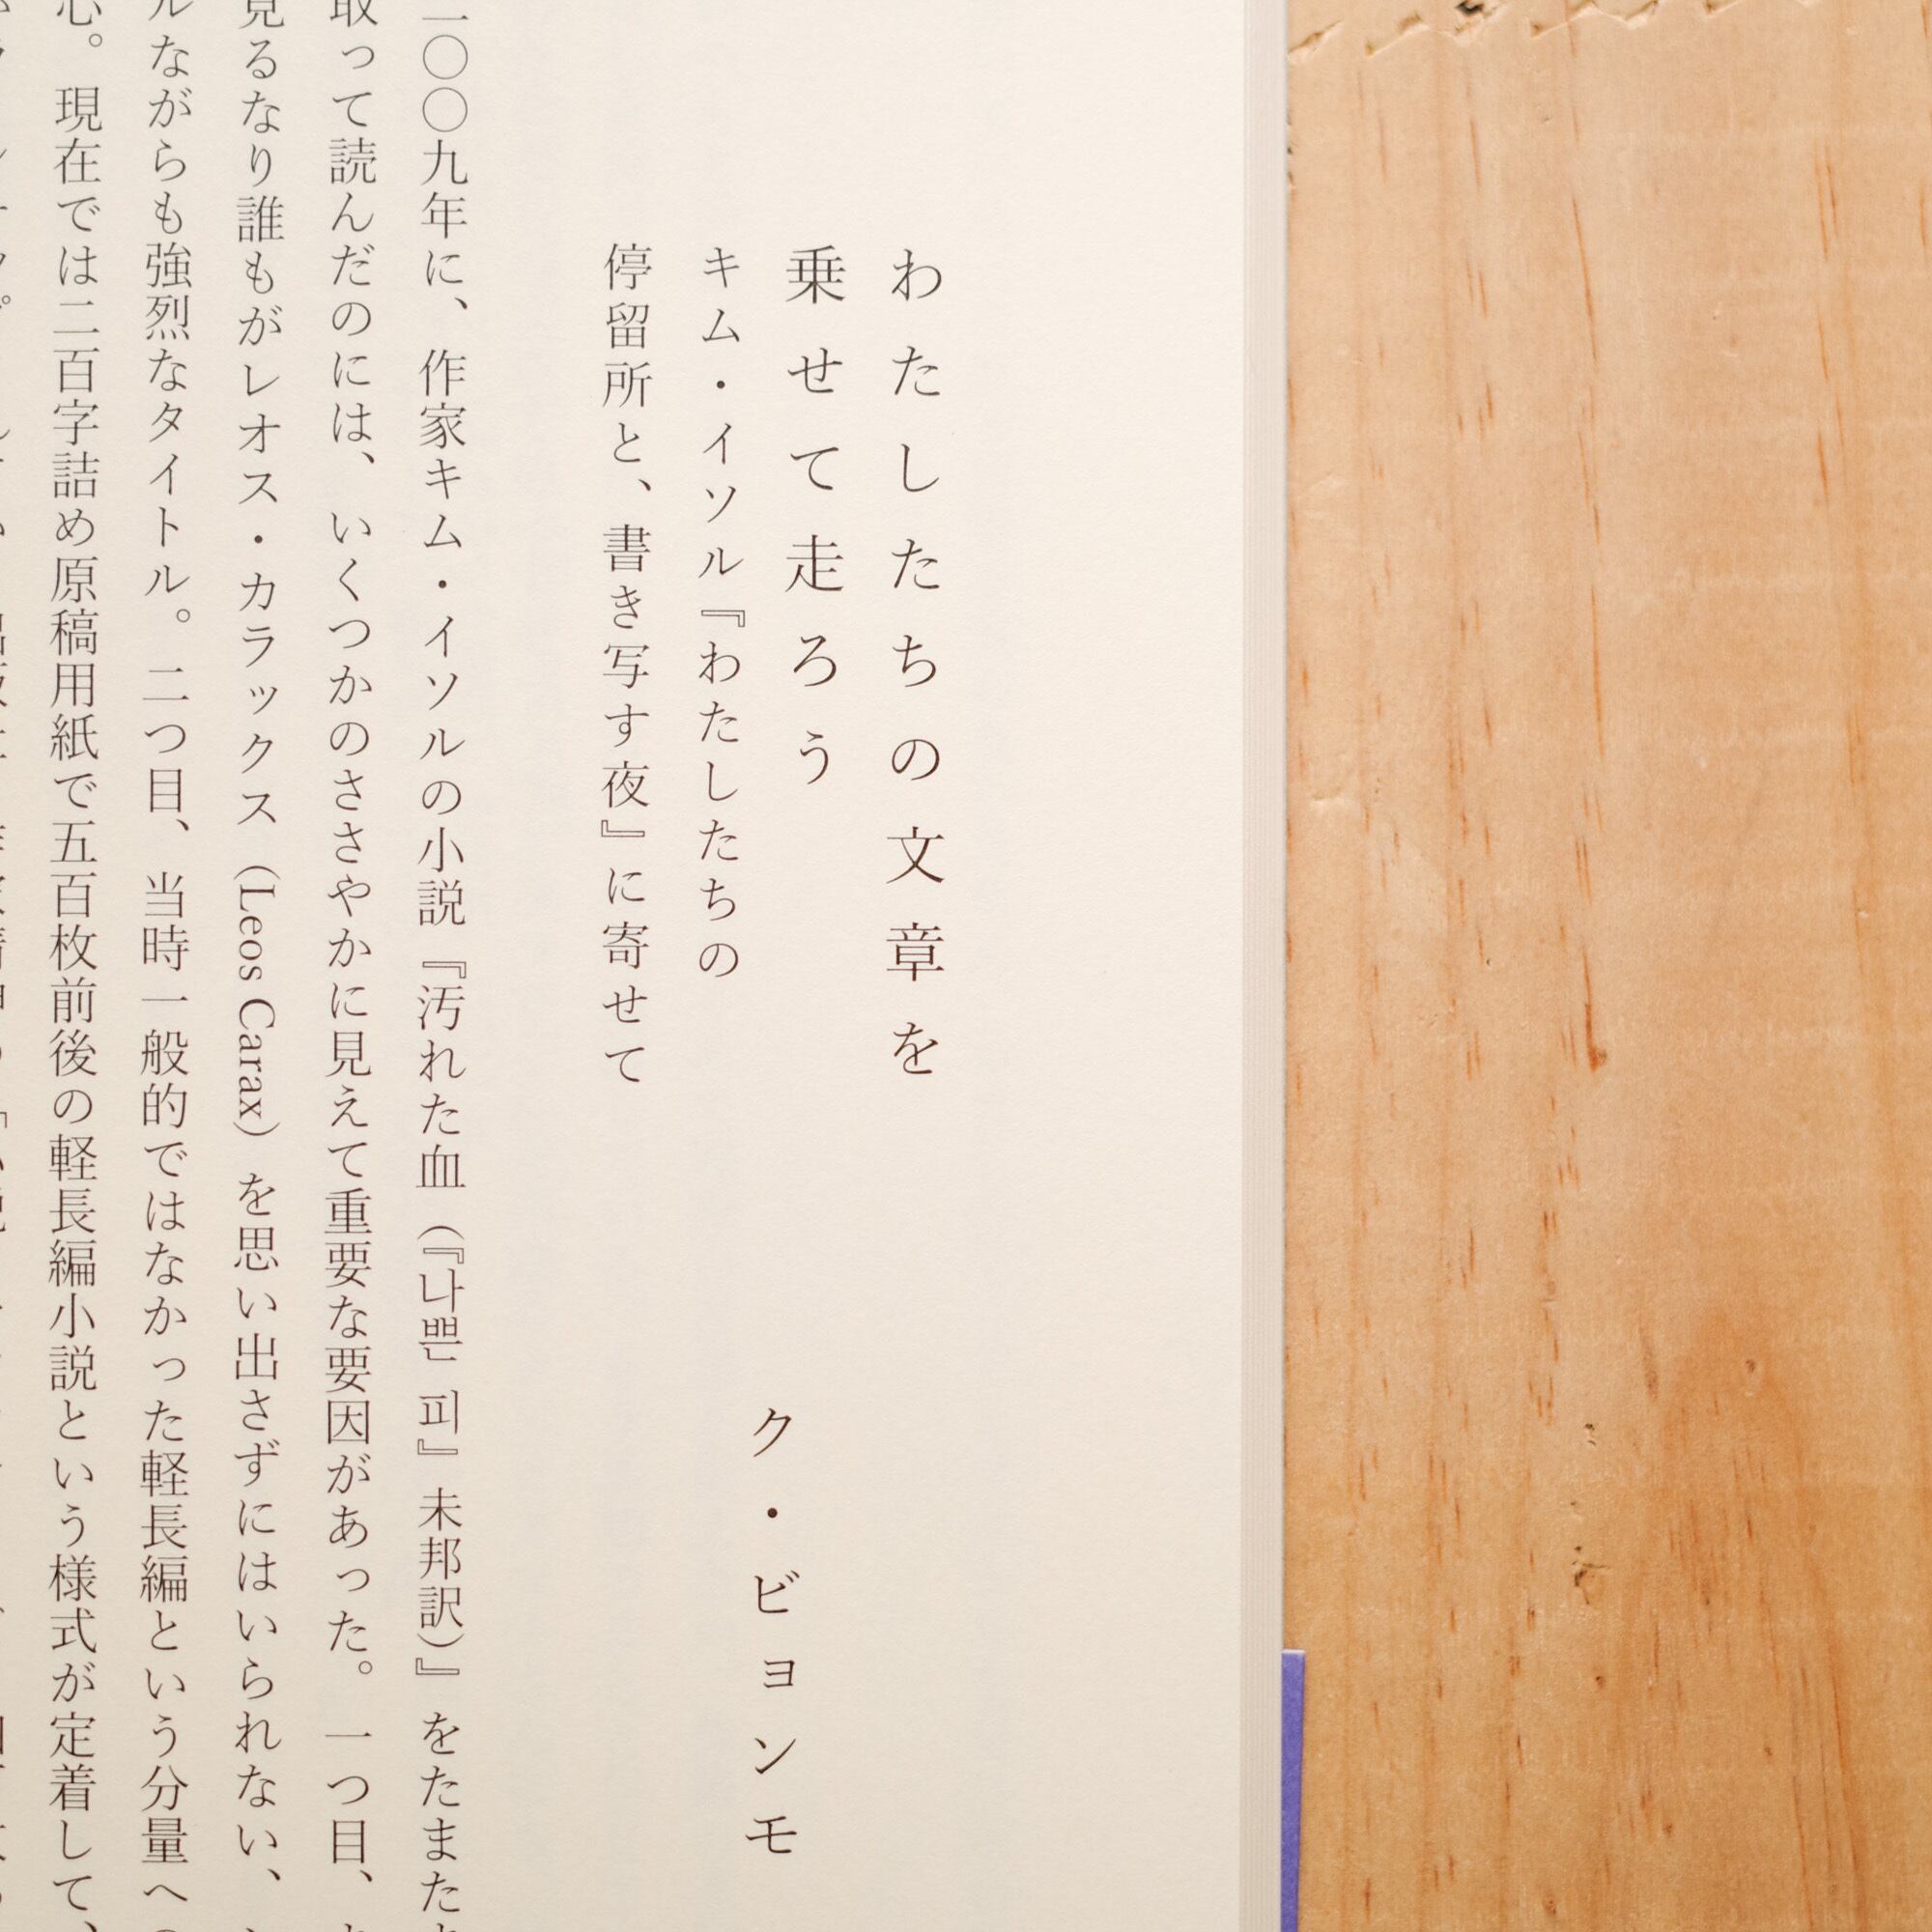 わたしたちの文章を
乗せて走ろう
キム・イソル『わたしたちの
停留所と、書き写す夜』に寄せて
ク・ビョンモ
二〇〇九年に、作家キム・イソルの小説『汚れた血（『나쁜 피』未邦訳）』をたまたま
取って読んだのには、いくつかのささやかに見えて重要な要因があった。一つ目、
見るなり誰もがレオス・カラックス（Leos Carax）を思い出さずにはいられない、
ルながらも強烈なタイトル。二つ目、当時一般的ではなかった軽長編という分量への
心。現在では二百字詰め原稿用紙で五百枚前後の軽長編小説という様式が定着して、